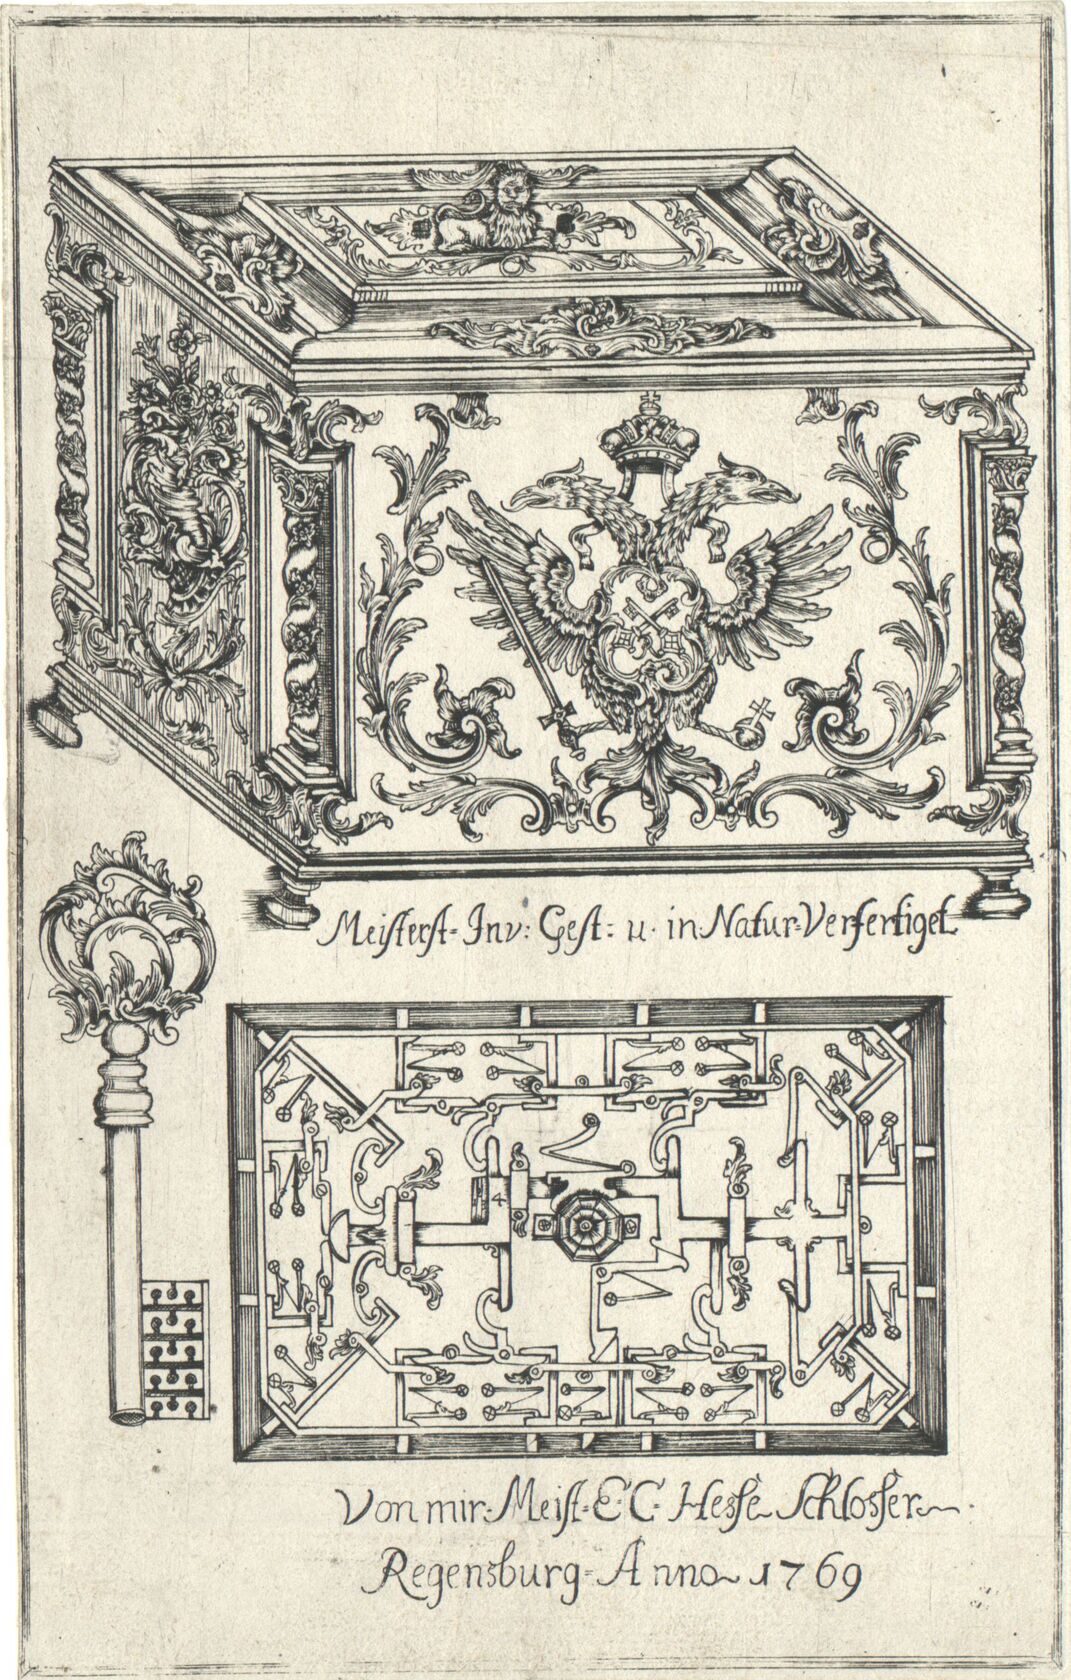 Meisterst= Inv: Gest: u. in Natur=Verfertiget
4
Von mir. Meist=E:C: Hesse Schlosser
Regensburg= Anno 1769